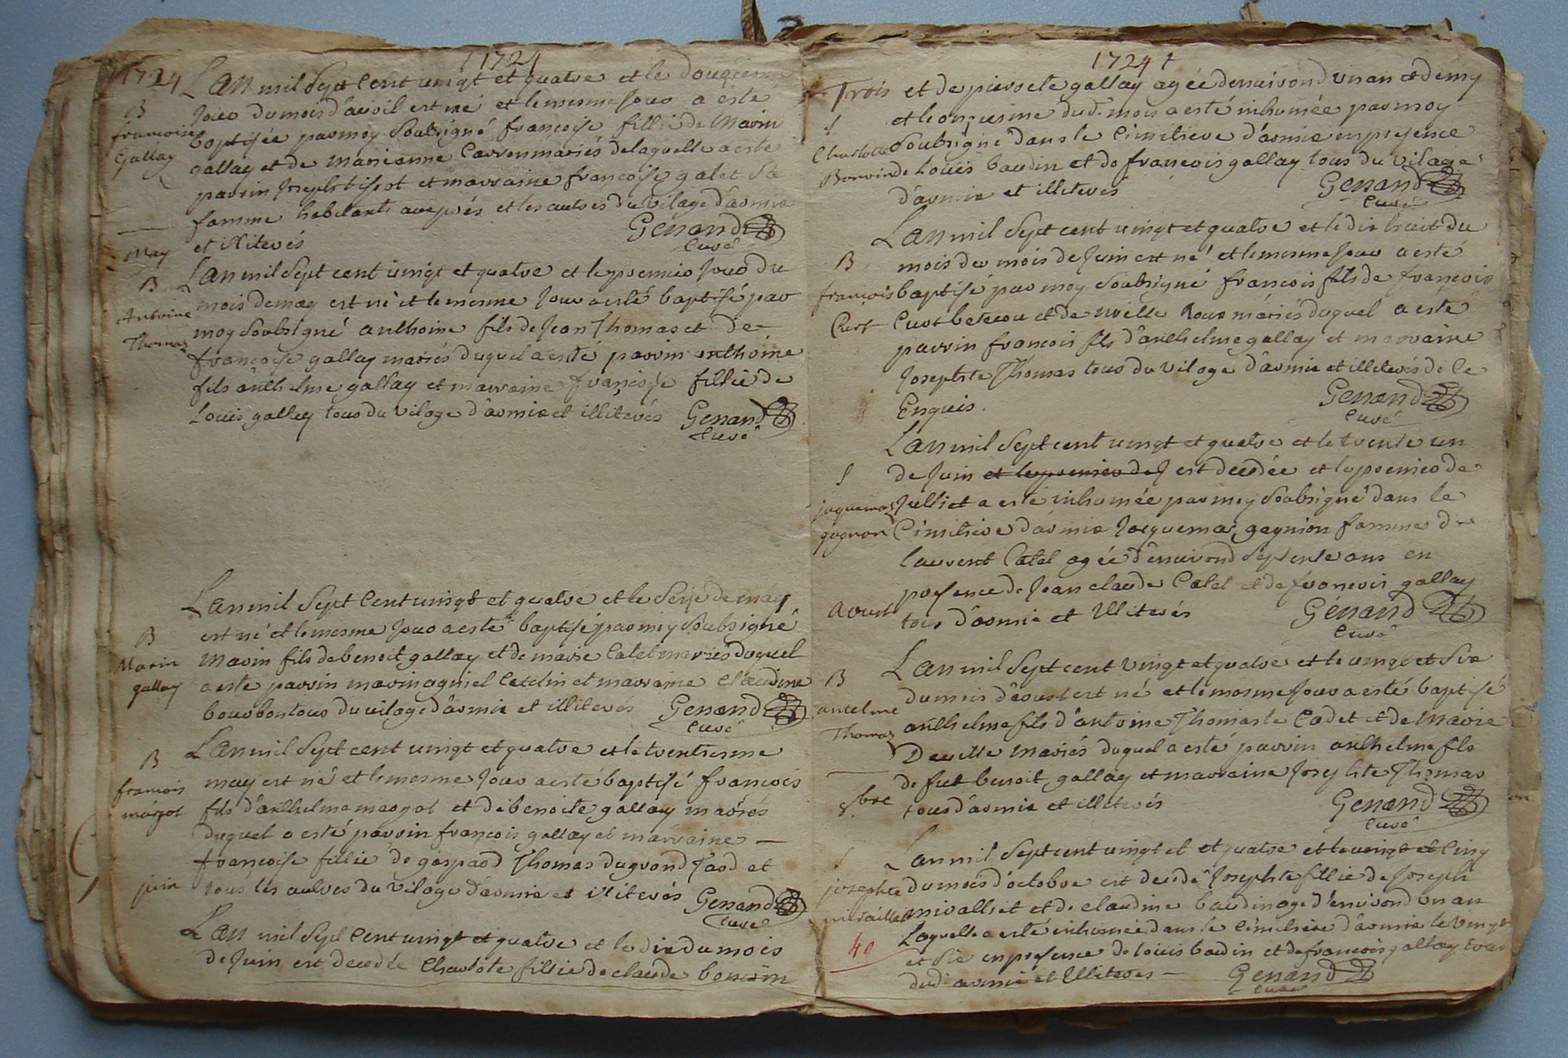 1724
1724
L'an mil Sept Cent vingt et quatre et le douzieme
B
Jour du mois d'avril est né et le mesme Jour a esté
francoise
baptisée par moy Soubsigné francoise fillie de Marin
Gallay
gallay et de Marianne mariés de laquelle a esté
parrin Joseph tissot et marraine francoise galet Sa
famme habitants et les autres du vilage d'armix
et illiterés
Genand
Curé
May
L'an mil Sept cent vingt et quatre et le premier Jour du
B
mois de may est né et le mesme Jour a esté baptisé par
Antoine
moy Soubsigné anthoine fils de Jean Thomas et de
Thomas
francoise gallay mariés duquel a esté parrin anthoine
fils anthelme gallay et marraine françoise fillie de
Louis gallay tous du vilage d'armix et illiterés Genand
Curé
L'an mil Sept Cent vingt et quatre et le Seize de may
B
est né et le mesme Jour a esté baptisé par moy Soubsigné
Marin
Marin fils de benoit gallay et de marie Catel mariés duquel
gallay
a esté parrin marin et marraine Claudine
tous du vilage d'armix et illiterés Genand
Curé
B
L'an mil Sept cent vingt et quatre et le trentiesme
may est né et le mesme Jour a esté baptisé francois
francois
margot
fils d'anthelme margot et de benoite gallay mariés
duquel a esté parrin francois gallay et marraine
francoise fillie de gaspard Thomas et
juin
tous les autres du vilage d'armix et illiterés Genand
Curé
L'an mil Sept Cent vingt et quatre et le dix du mois
de Juin est decedée Charlote fillie de claude bonvin
1724
Trois
et de pierrete gallay agée d'environ d'un an et demy
S
et le onziesme dud. mois a esté inhumée par moy
Charlotte
Soubsigné dans le Cimetiere d'armix en presence
Bonvin
de Louis baudin et de francois gallay tous du vilage
d'armix et illiterés
Genand
Curé
L'an mil Sept cent vingt et quatre et le dix huit du
B
mois du mois de Juin est né et le mesme Jour a esté
francois
baptisé par moy Soubsigné francois fils de francois
Curt
Curt et de mariés duquel a esté
parrin francois fils d'anthelme gallay et marraine
Josephte Thomas tous du vilage d'armix et illiterés de ce
Enquis.
Genand
Curé
L'an mil Sept cent vingt et quatre et le trente un
S
de Juin et le premier de J est decedée et le premier de
jaquemaz
Julliet a esté inhumée par moy Soubsigné dans le
gognon
Cimetiere d'armix Jacquemaz gognion famme de
laurent Catel agée d'environ Septente ans en
presence de Jean claude Catel et de francois gallay
Aoust
tous d'armix et illiterés
Genand
Curé
L'an mil Sept cent vingt et quatre et le vingt et Six
B
du mois d'aoust est né et le mesme Jour a esté baptisé
antelme
anthelme fils d'antoine Thomas le Cadet et de Marie
Thomas
mariés duquel a esté parrin anthelme fils
de fut benoit gallay et marraine Josephte Thomas
8bre
tous d'armix et illiterés
Genand
Curé
S
L'an mil Sept cent vingt et et quatre et le vingt et Cinq
josephte
du mois d'octobre est decedé Josephte fillie de Joseph
mivalliet et de claudine baudin agé d'environ d'un an
40
Laquelle a esté inhumée dans le cimetiere d'armix le vingt
et Six en presence de louis badin et de francois gallay tous
dud. armix et Illiterés
Genand
Curé